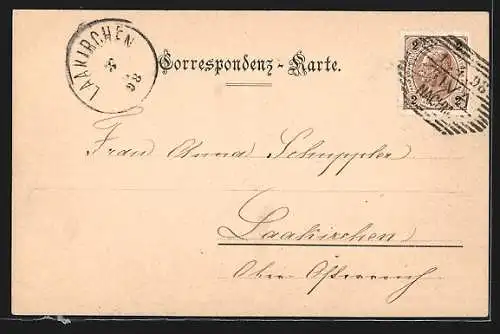 LAAKIRCHEN
98
Correspondenz-Karte.
2 2
98
LINZ
NACHM
2 2
Frau Anna Schuppler
Laakirchen
Ober Österreich